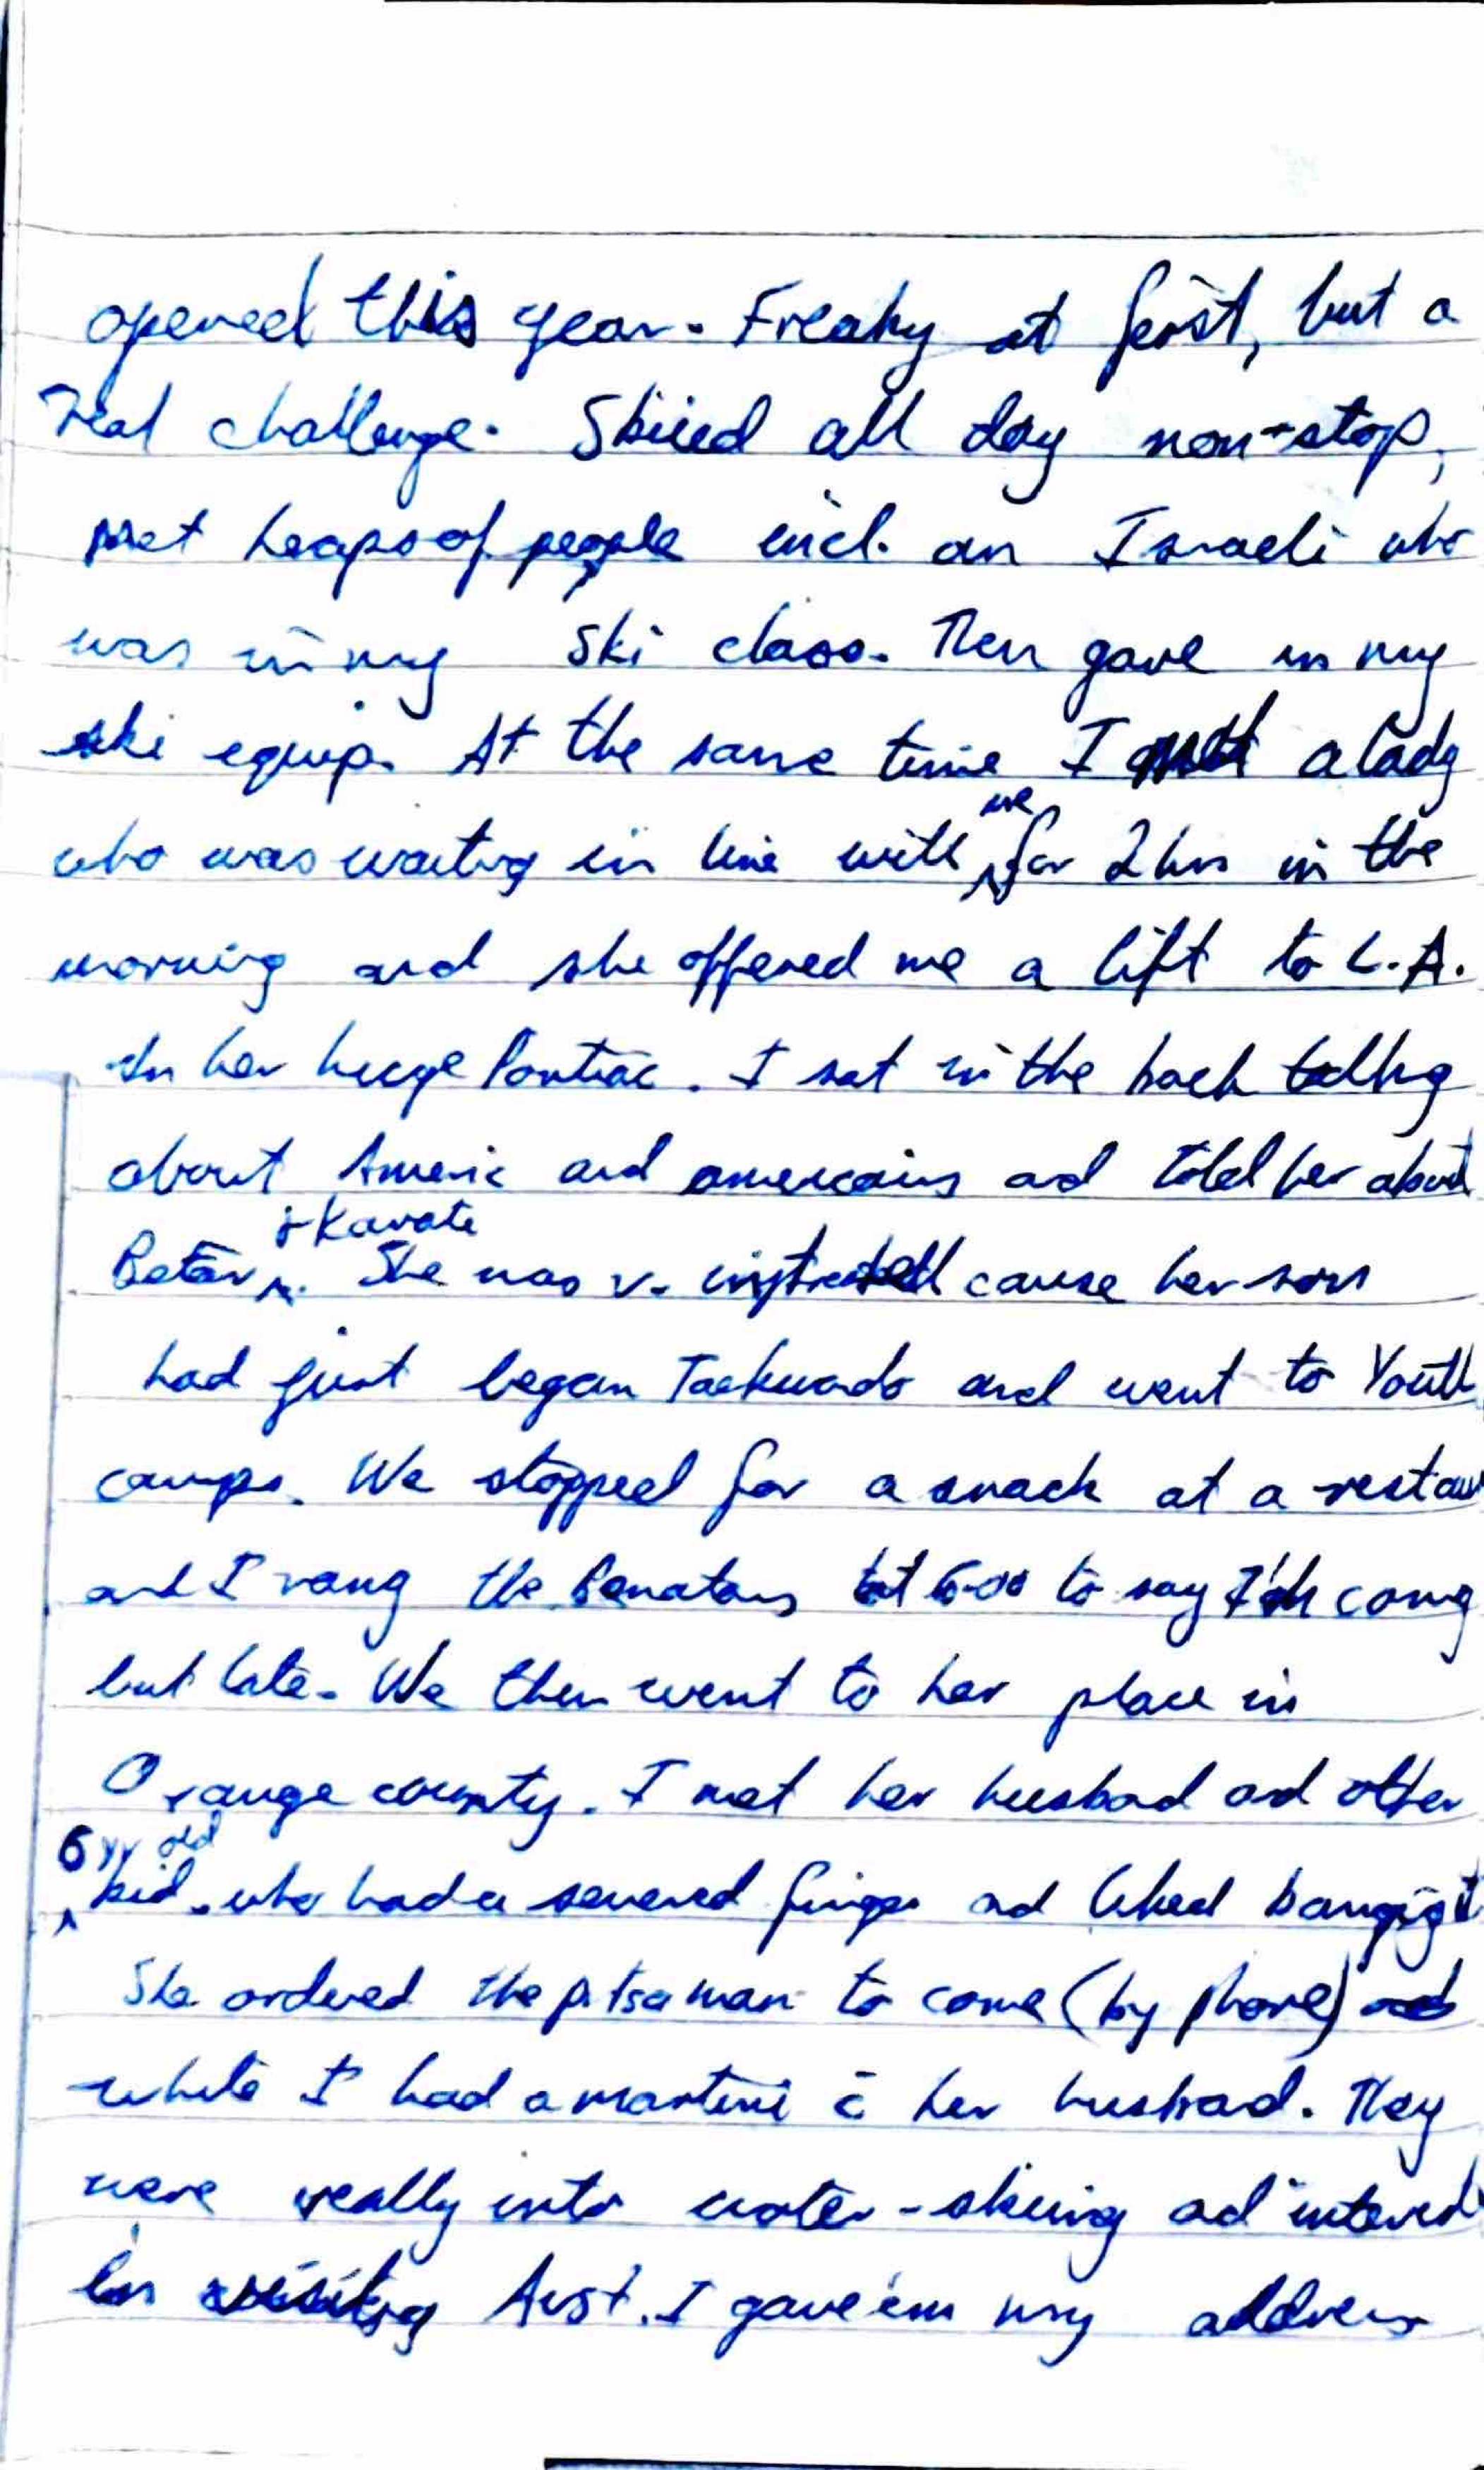 opened this year. Freaky at first, but a
real challenge. Skiied all day non-stop,
met heaps of people incl. an Israeli who
was in my ski class. Then gave in my
ski equip. At the same time I met a lady
who was waiting in line with me for 2 hrs in the
morning and she offered me a lift to L.A.
In her huge Pontiac. I sat in the back talking
about Americ and americains and told her about
Betar & Karate. She was v. cause her son
had just began Taekwondo and went to Youth
camps. We stopped for a snack at a restau
and I rang the at 6.00 to say I'd coming
but late. We then went to her place in
Orange county. I met her husband and other
6 yr old kid who had a severed finger and liked banging
She ordered the pitsa man to come (by phone)
while I had a martini c̄ her husband. They
were really into water-skiing ad interest
in visiting Aust. I gave 'em my address